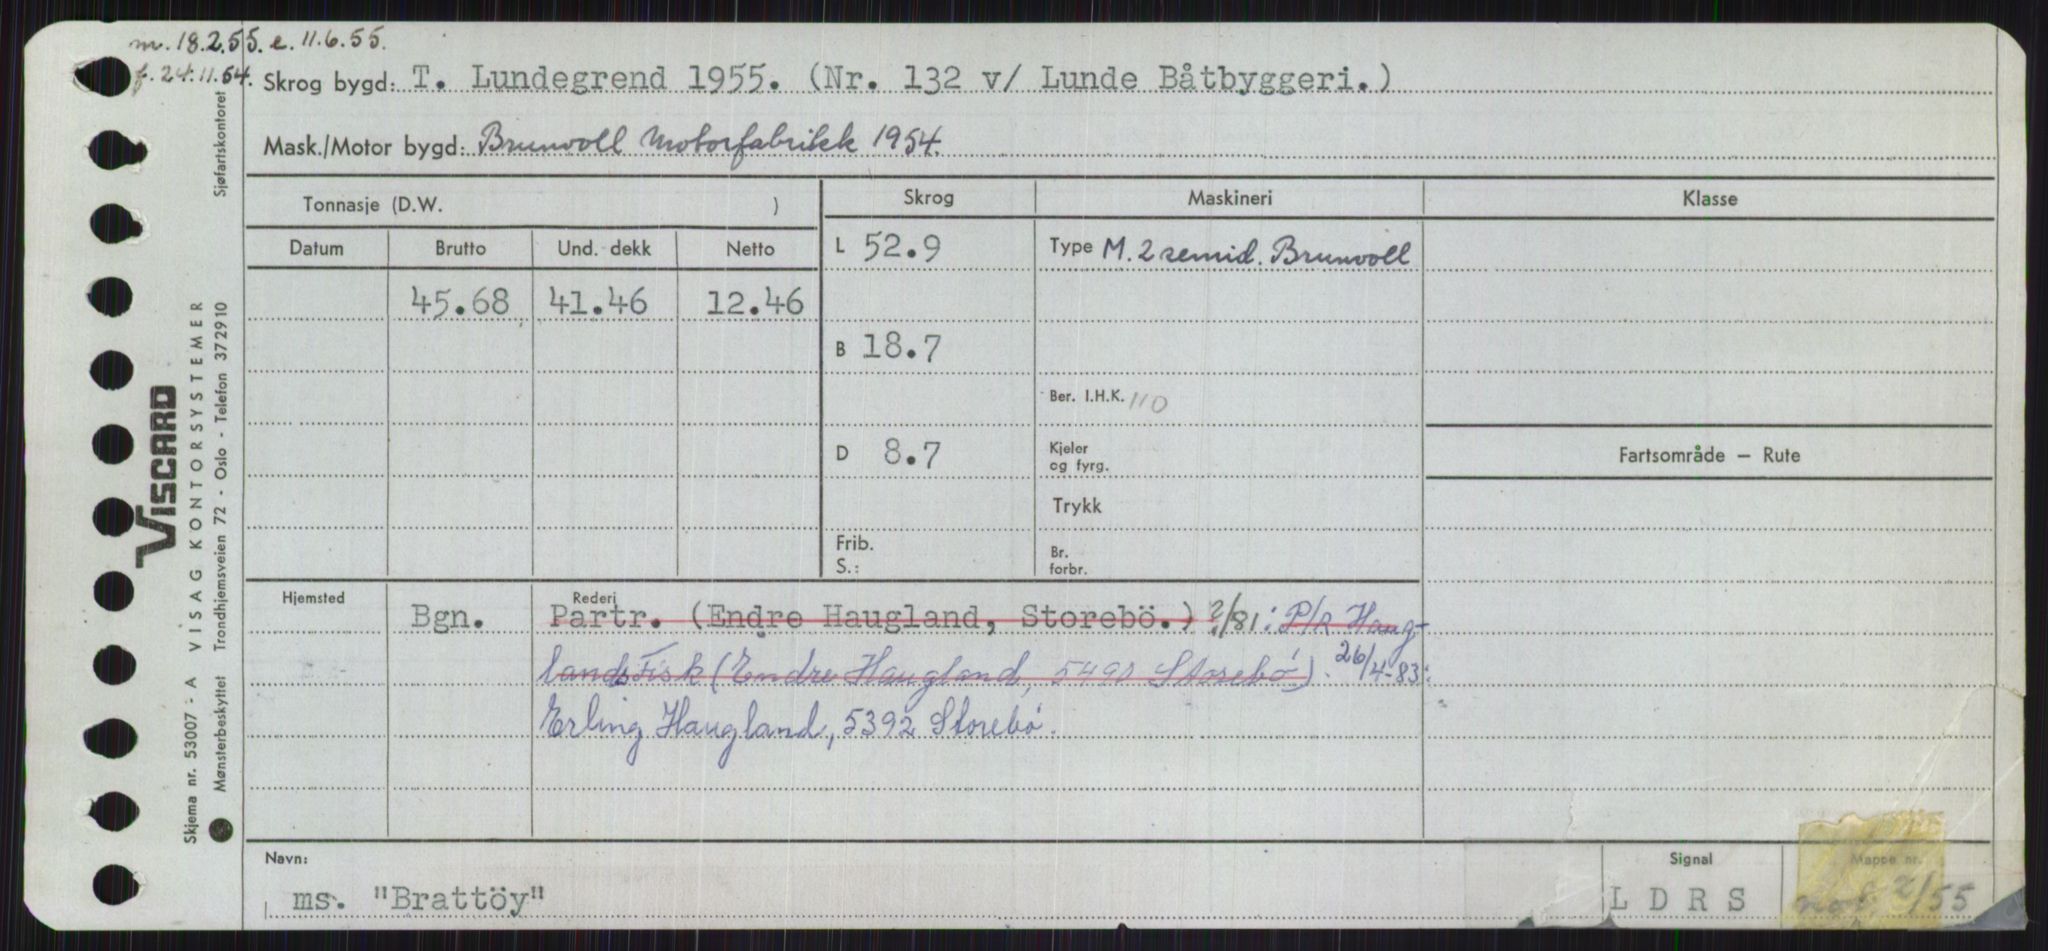 m. 18.2.55. e. 11.6.55.
f. 24.11.54.
Skrog bygd: T. Lundegrend 1955. (Nr. 132 v/ Lunde Båtbyggeri.)
Mask./Motor bygd: Brunvoll Motorfabrikk 1954.
Tonnasje (D.W. )
Skrog
Maskineri
Klasse
Datum Brutto Und. dekk Netto
L 52.9
Type M. 2 semid. Brunvoll
45.68 41.46 12.46
B 18.7
Ber. I.H.K. 110
D 8.7
Kjeler
og fyrg.
Fartsområde — Rute
Trykk
Frib.
S.:
Br.
forbr.
Hjemsted
Rederi
Bgn. Partr. (Endre Haugland, Storebö.) 2/81: P/R Haug-
lands Fisk (Endre Haugland, 5490 Storebö). 26/4-83:
Erling Haugland, 5392 Storebö.
Navn:
ms. "Brattöy"
Signal
LDRS
Mappe nr.
2/55
Sjøfartskontoret
VISCARD
VISAG KONTORSYSTEMER
Trondhjemsveien 72 - Oslo - Telefon 372910
Skjema nr. 53007 - A
Mønsterbeskyttet